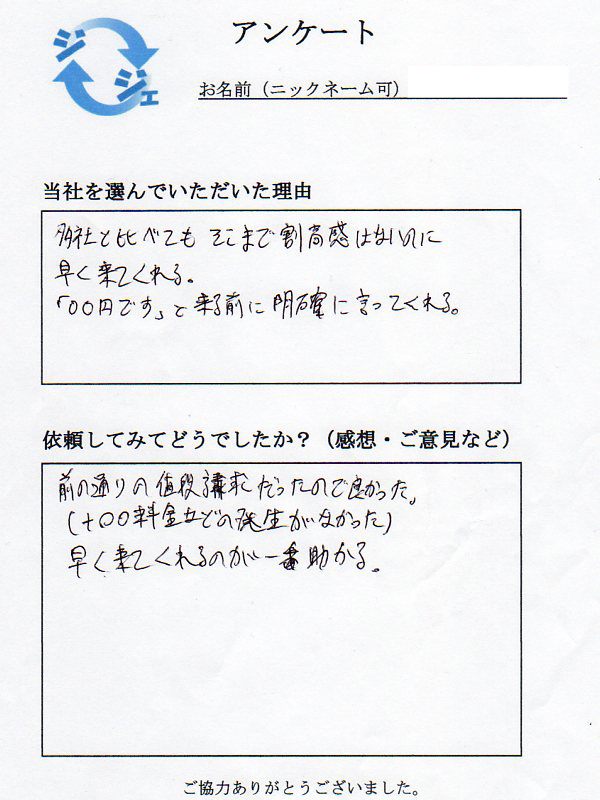 ジジェ
アンケート
お名前（ニックネーム可）
当社を選んでいただいた理由
多社と比べても そこまで割高感はないのに
早く来てくれる。
「〇〇円です」と来る前に明確に言ってくれる。
依頼してみてどうでしたか？（感想・ご意見など）
前の通りの値段請求だったので良かった。
(+〇〇料金などの発生がなかった)
早く来てくれるのが一番助かる。
ご協力ありがとうございました。